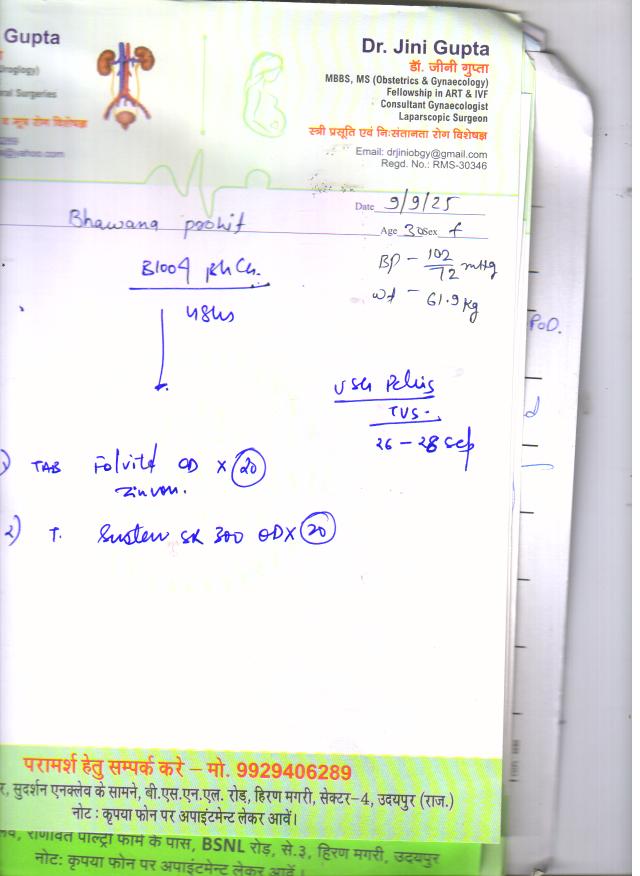 Gupta
ral Surgeries
व मूत्र रोग विशेषज्ञ
@yahoo.com
Dr. Jini Gupta
डॉ. जीनी गुप्ता
MBBS, MS (Obstetrics & Gynaecology)
Fellowship in ART & IVF
Consultant Gynaecologist
Laparscopic Surgeon
स्त्री प्रसूति एवं निःसंतानता रोग विशेषज्ञ
Email: drjiniobgy@gmail.com
Regd. No.: RMS-30346
Date 9/9/25
Bhawana
Age 30 Sex f
BP - 102/72 mmHg
wt - 61.9 kg
48hs
POD.
USG Pelvis
TVS -
26 - 28 Sep
TAB Folvite OD X 20
2) T. Susten SR 300 OD X 20
परामर्श हेतु सम्पर्क करे – मो. 9929406289
र, सुदर्शन एनक्लेव के सामने, बी.एस.एन.एल. रोड, हिरण मगरी, सेक्टर-4, उदयपुर (राज.)
नोट : कृपया फोन पर अपाइंटमेन्ट लेकर आवें।
राणावत पोल्ट्री फार्म के पास, BSNL रोड़, से.3, हिरण मगरी, उदयपुर
नोट: कृपया फोन पर अपाइंटमेन्ट लेकर आवें।